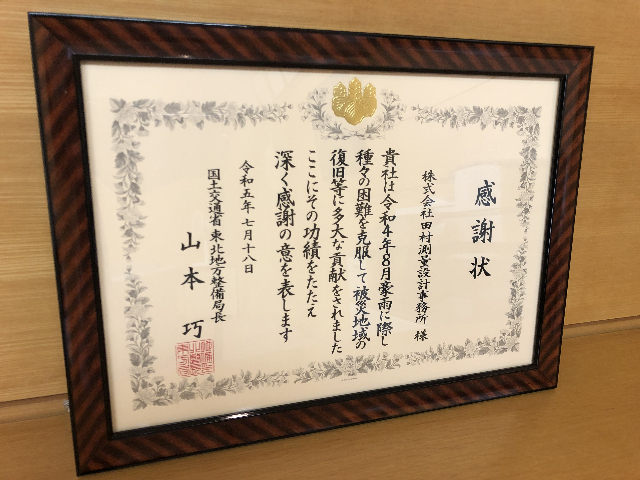 感謝状
株式会社田村測量設計事務所 様
貴社は令和4年8月豪雨に際し
種々の困難を克服して被災地域の
復旧等に多大な貢献をされました
ここにその功績をたたえ
深く感謝の意を表します
令和五年七月十八日
国土交通省 東北地方整備局長
山本 巧